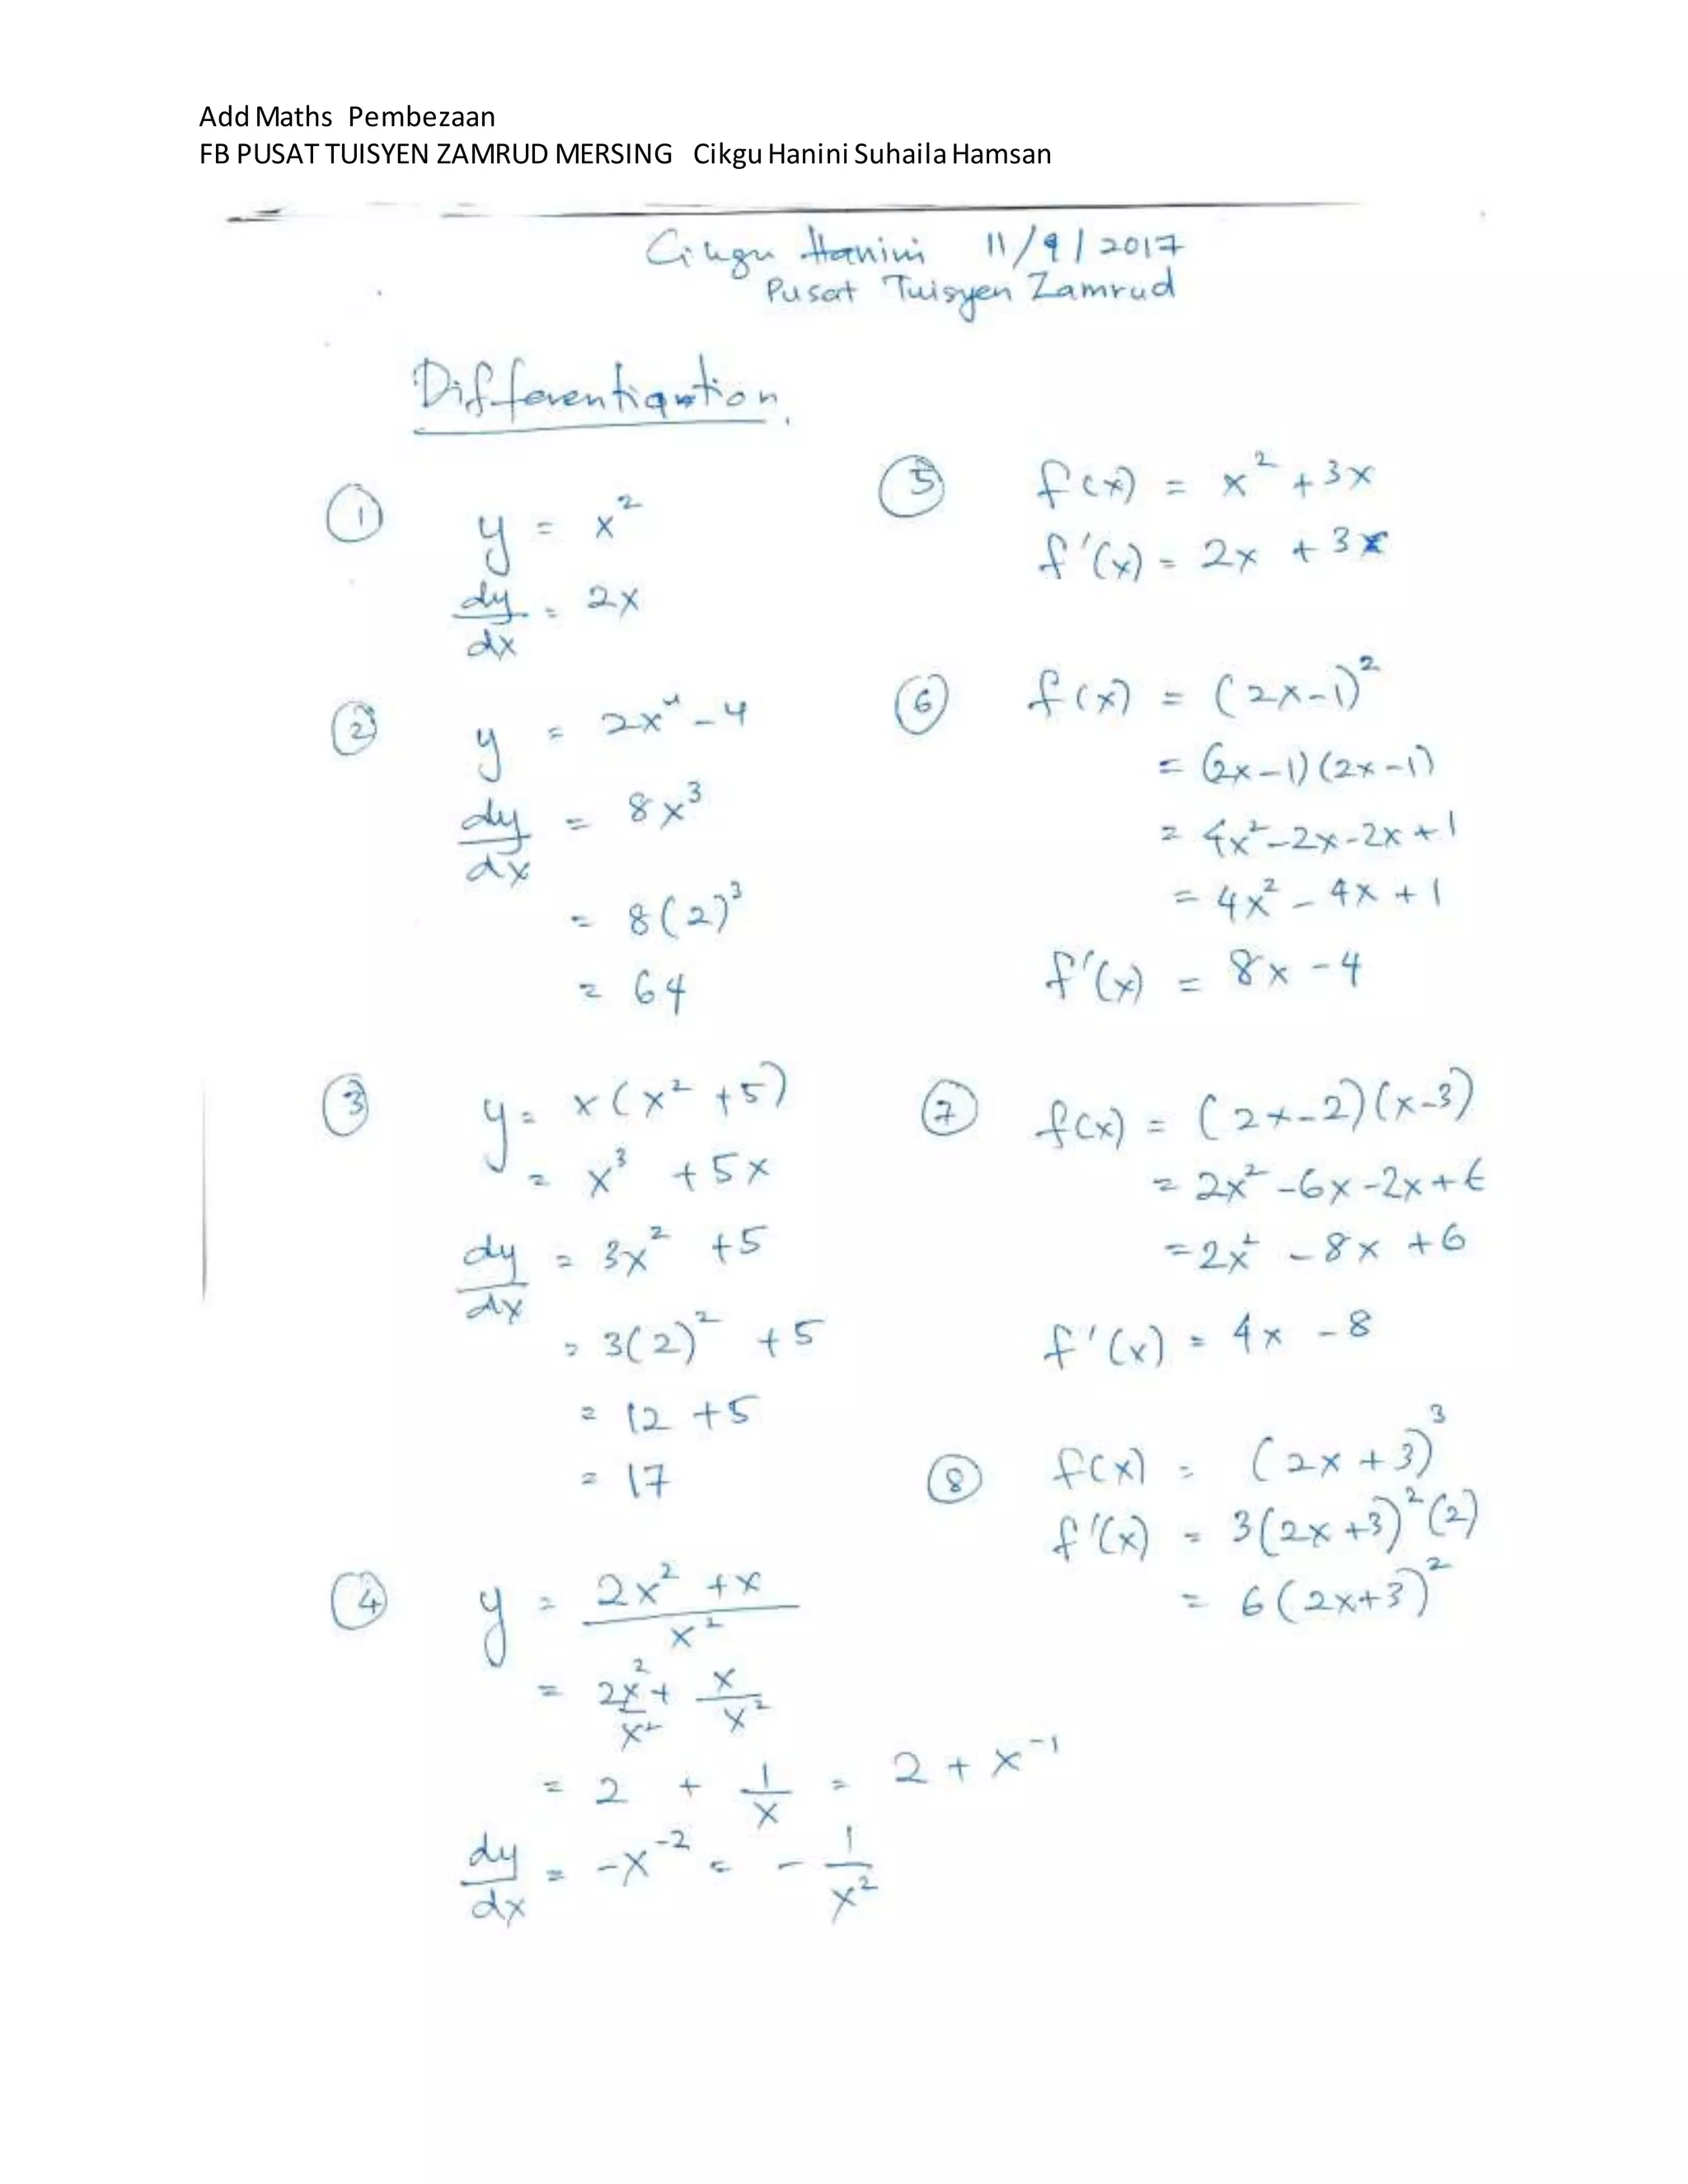 Add Maths Pembezaan
FB PUSAT TUISYEN ZAMRUD MERSING Cikgu Hanini Suhaila Hamsan
Cikgu Hanini 11/9/2017
Pusat Tuisyen Zamrud
Differentiation.
① y = x²
dy/dx = 2x
② y = 2x⁴ - 4
dy/dx = 8x³
= 8(2)³
= 64
③ y = x(x² + 5)
= x³ + 5x
dy/dx = 3x² + 5
= 3(2)² + 5
= 12 + 5
= 17
④ y = (2x² + x)/x²
= 2x²/x² + x/x²
= 2 + 1/x = 2 + x⁻¹
dy/dx = -x⁻² = - 1/x²
⑤ f(x) = x² + 3x
f'(x) = 2x + 3
⑥ f(x) = (2x-1)²
= (2x-1)(2x-1)
= 4x²-2x-2x+1
= 4x² - 4x + 1
f'(x) = 8x - 4
⑦ f(x) = (2x-2)(x-3)
= 2x²-6x-2x+6
= 2x² - 8x + 6
f'(x) = 4x - 8
⑧ f(x) = (2x+3)³
f'(x) = 3(2x+3)²(2)
= 6(2x+3)²